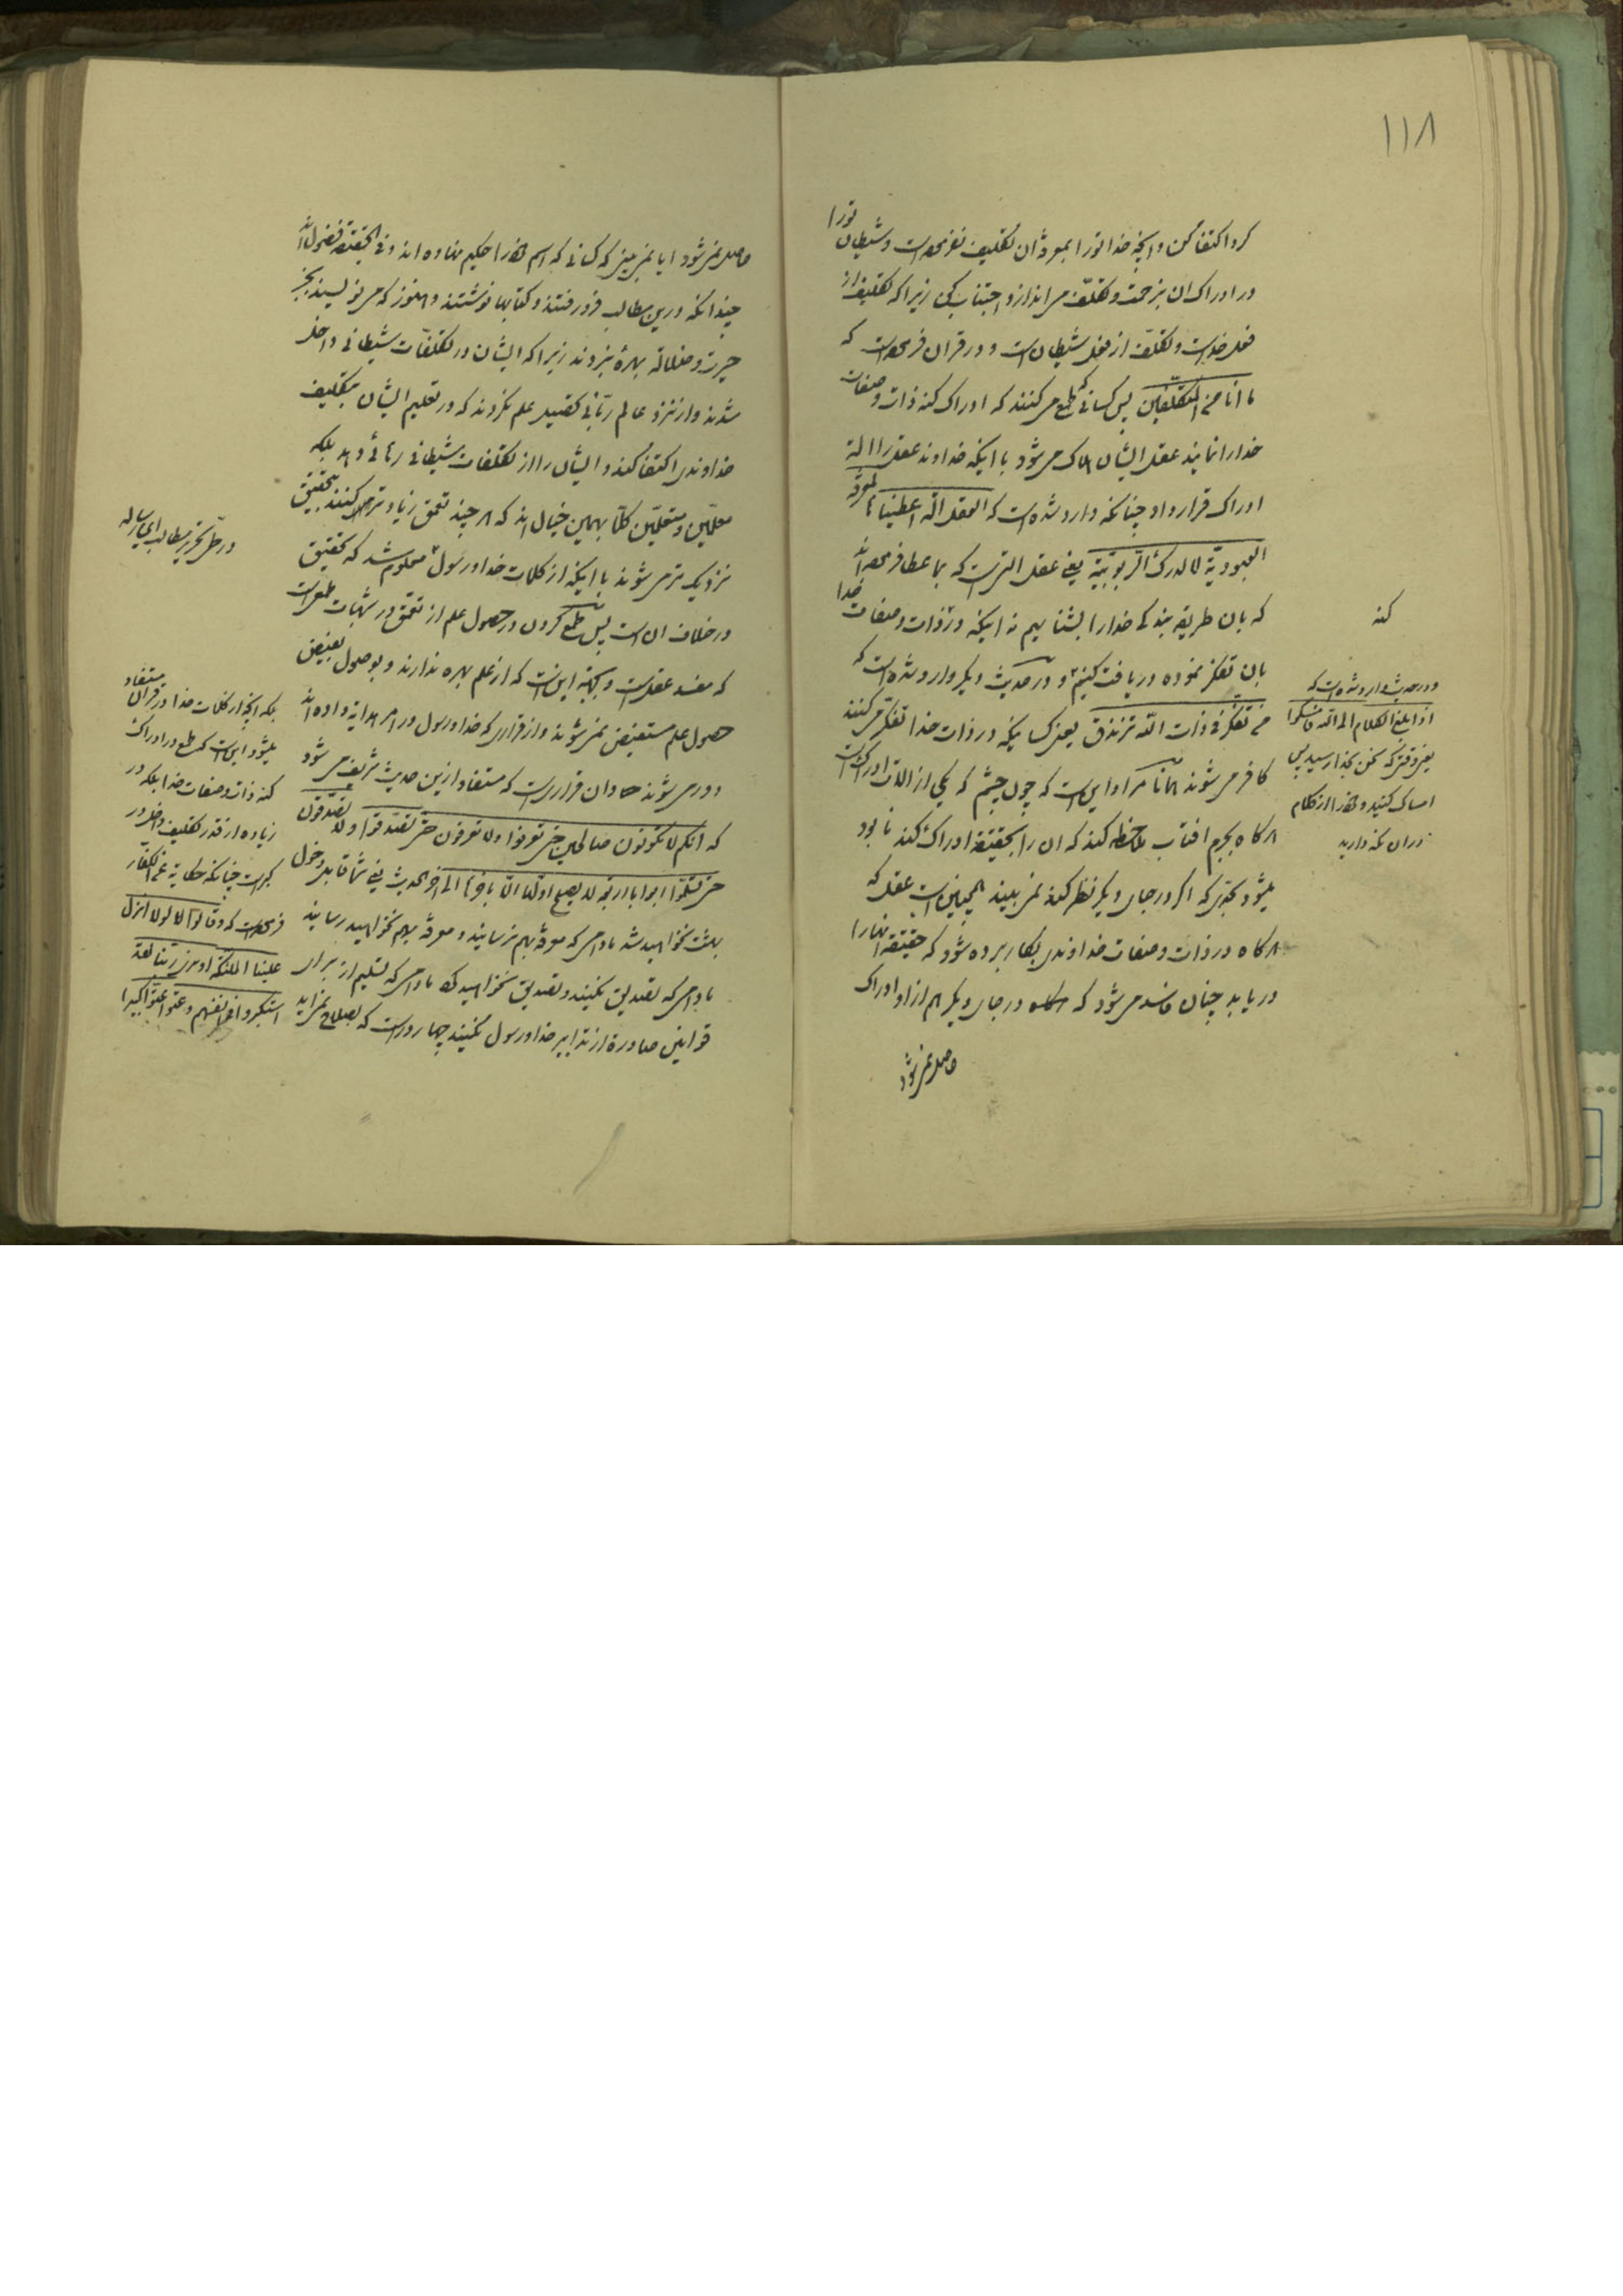 ١١٨
کرد اکتفا کن و آنچه خدا تو را بمعرفة آن تکلیف نفرموده است و شیطان تو را
در ادراک آن بزحمت و تکلّف می اندازد اجتناب کن زیرا که تکلیف از
فعل خداست و تکلّف از فعل شیطان است و در قرآن فرموده است که
ما انا من المتکلّفین پس کسانی که طمع می کنند که ادراک کنه ذات و صفات
خدا را نمایند عقل ایشان هلاک می شود با اینکه خداوند عقل را آلة
ادراک قرار داد چنانکه وارد شده است که العقل آلة اعطیناها لمعرفة
العبودیّة لا لدرک الرّبوبیّة یعنی عقل آلتی است که بما عطا فرموده اند
که بآن طریقه بندکی خدا را بشناسیم نه اینکه در ذات و صفات خدا
بآن تفکّر نموده دریافت کنیم و در حدیث دیکر وارد شده است که
من تفکّر فی ذات الله تزندق یعنی کسانیکه در ذات خدا تفکّر می کنند
کافر می شوند همانا مراد این است که چون چشم که یکی از آلات ادراک است
هرکاه بجرم آفتاب ملاحظه کند که آن را بحقیقة ادراک کند نابود
میشود بحدّی که اکر در جای دیکر نظر کند نمی بیند همچنین است عقل که
هرکاه در ذات و صفات خداوندی بکار برده شود که حقیقة آنها را
دریابد چنان فاسد می شود که در جای دیکر هم از او ادراک
حاصل نمی شود
کنه
و در حدیث وارد شده است که
اذا بلغ الکلام الی الله فامسکوا
یعنی وقتی که سخن بخدا رسید پس
امساک کنید و خود را از کلام
در آن نکه دارید
حاصل نمی شود آیا نمی بینی که کسانی که اسم خود را حکیم نهاده اند و فی الحقیقة فضول اند
چندانکه درین مطالب فرو رفتند و کتابها نوشتند و هنوز که می نویسند بجز
حیرت و ضلالة بهرهٔ نبردند زیرا که ایشان در تکلّفات شیطانی داخل
شدند و از نزد عالم ربّانی تحصیل علم نکردند که در تعلیم ایشان بتکلیف
خداوندی اکتفا کند و ایشان را از تکلّفات شیطانی رهائی دهد بلکه
معلّمین و متعلّمین کلّا بهمین خیال اند که هر چند تعمّق زیادتر می کنند بتحقیق
نزدیک تر می شوند با اینکه از کلمات خدا و رسول معلوم شد که تحقیق
در خلاف آن است پس طمع کردن در حصول علم از تعمّق در شبهات طمعی است
که مفسد عقل است و بجهة این است که از علم بهره ندارند و بوصول بفیض
حصول علم مستفیض نمی شوند و از قراری که خدا و رسول در امر هدایة داده اند
دور می شوند و آن قراری است که مستفاد از این حدیث شریف می شود
که انکم لا تکونون صالحین حتی تعرفوا و لا تعرفون حتی تصدّقوا و لا تصدّقون
حتی تسلّموا ابوابا اربعة لا یصلح اوّلها الّا بآخرها الی آخر الحدیث یعنی شما قابل دخول
بهشت نخواهید شد مادامی که معرفة بهم نرسانید و معرفة بهم نخواهید رسانید
مادامی که تصدیق نکنید و تصدیق نخواهید کرد مادامی که تسلیم از برای
قوانین صادرة از تدابیر خدا و رسول نکنید چهار در است که بصلاح نمی آید
در حلّ تحریر مطالب این رساله
بلکه آنچه از کلمات خدا در قرآن مستفاد
میشود این است که طمع در ادراک
کنه ذات و صفات خدا بلکه در
زیاده از قدر تکلیف داخل در
کبر است چنانکه حکایة عن الکفّار
فرموده است که و قالوا لولا انزل
علینا الملئکة او نری ربّنا لقد
استکبروا فی انفسهم و عتوا عتوّا کبیرا